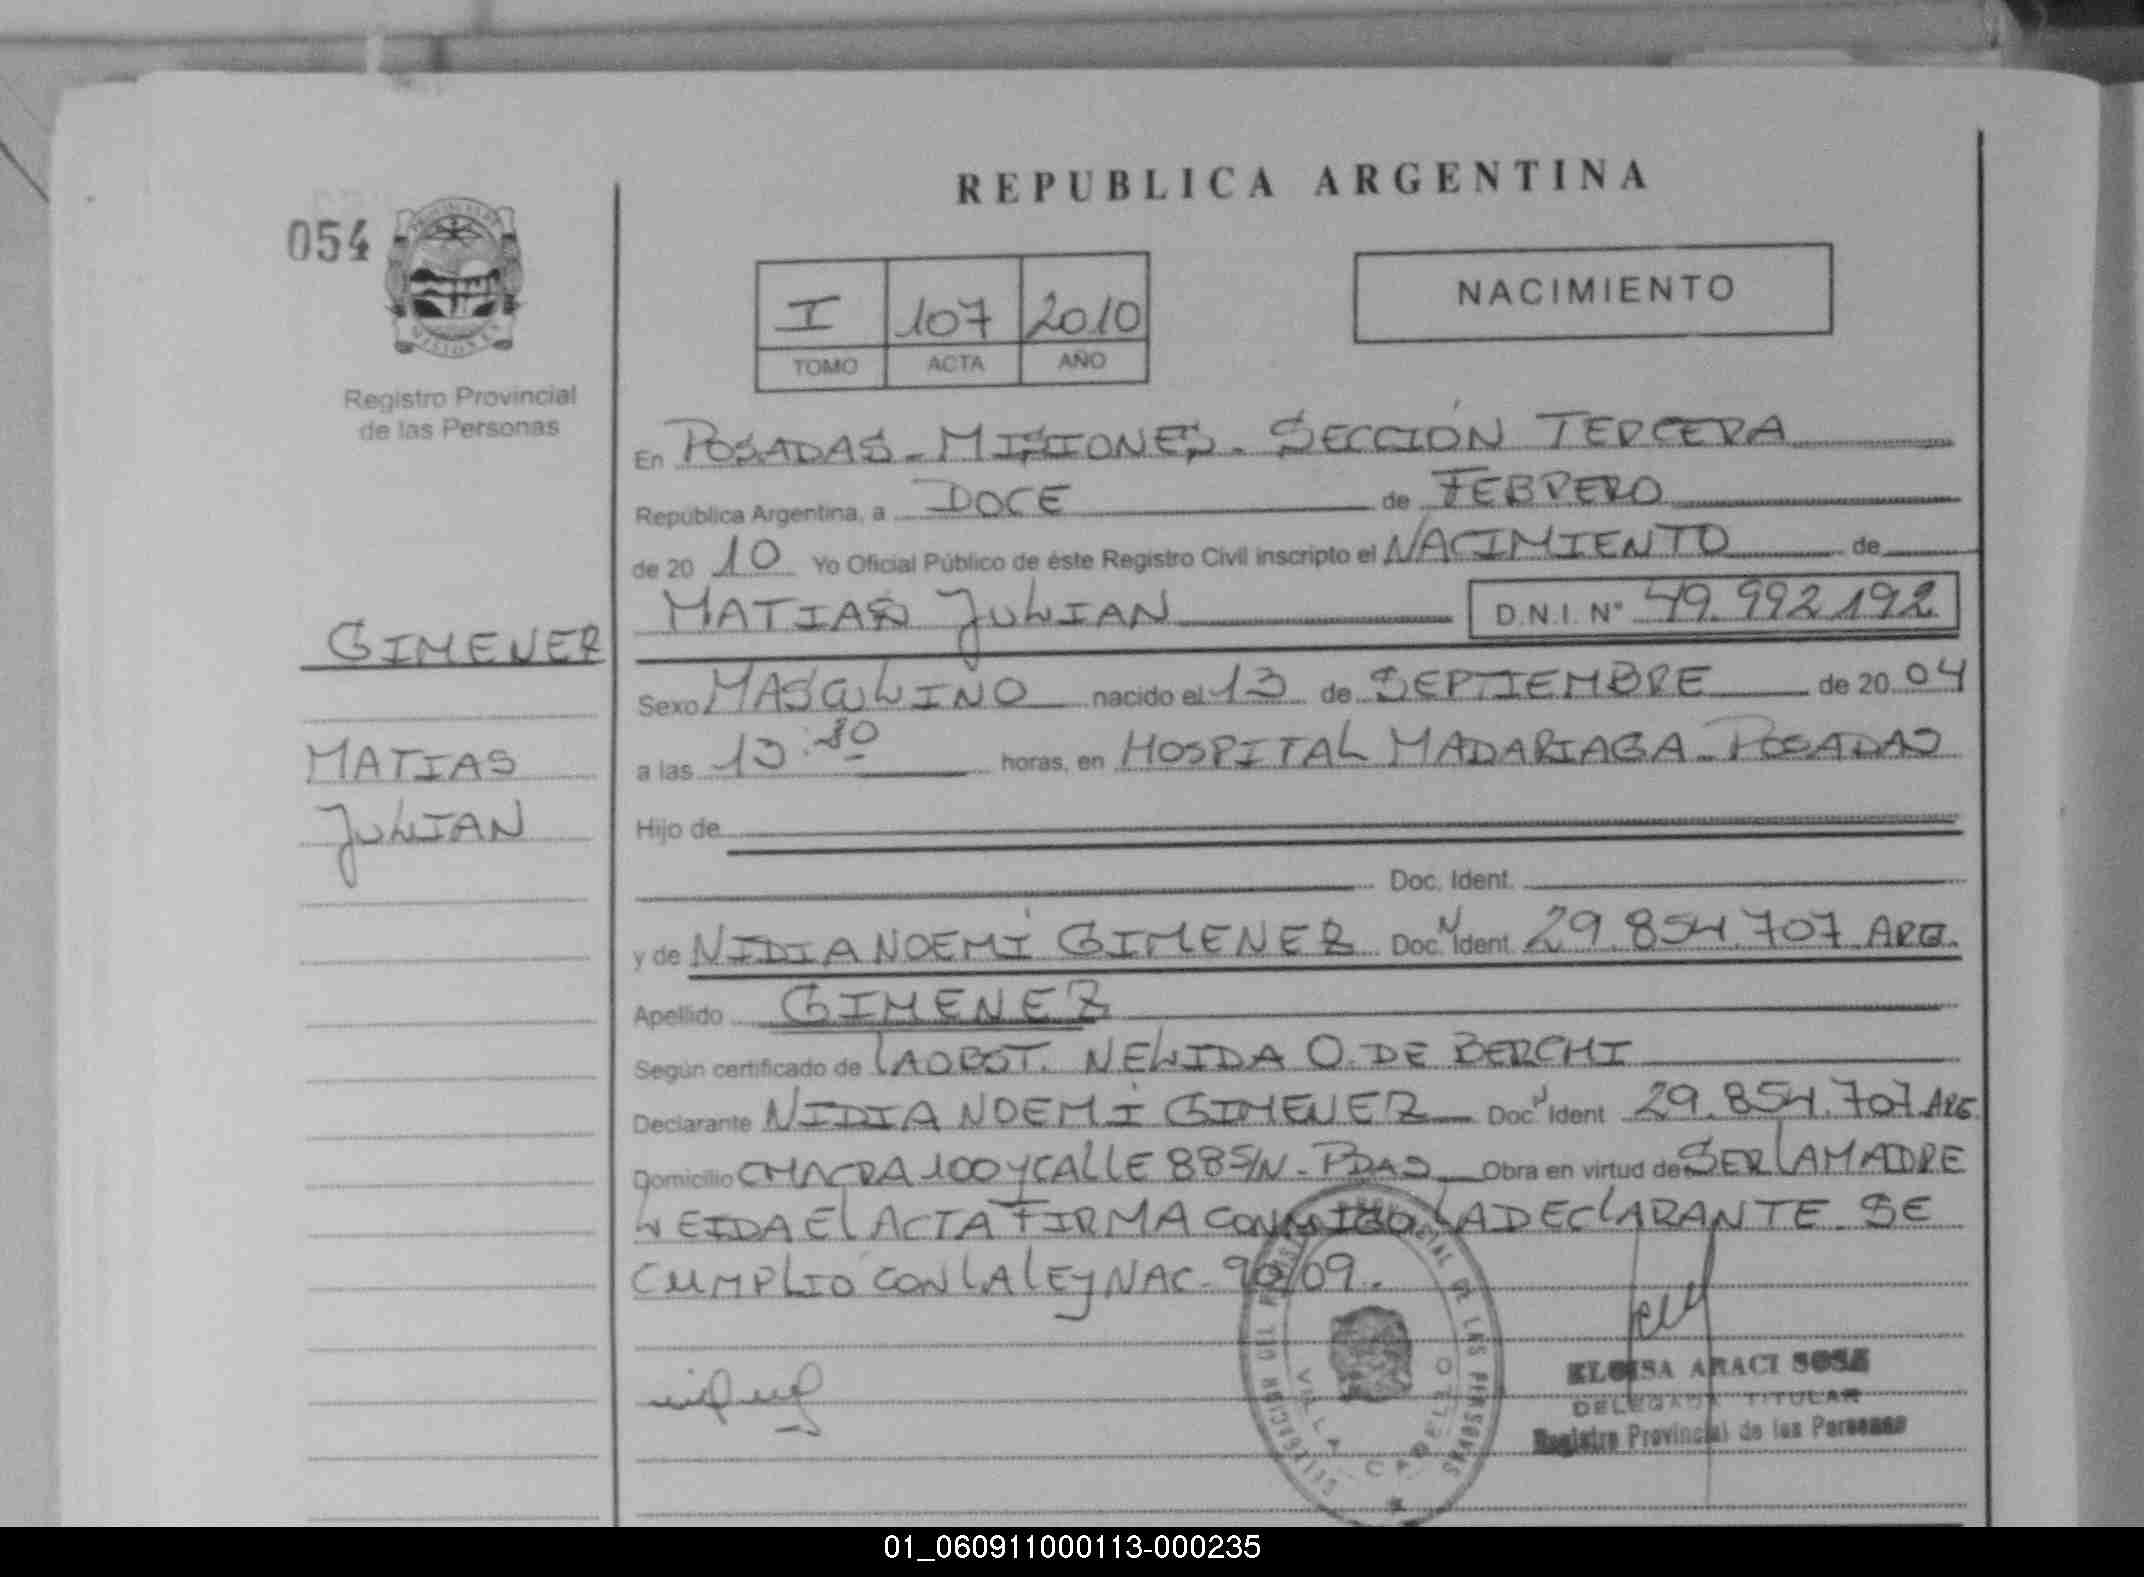 REPUBLICA ARGENTINA
054
I 107 2010
TOMO ACTA AÑO
NACIMIENTO
MISIONES
Registro Provincial
de las Personas
En POSADAS - MISIONES - SECCIÓN TERCERA
República Argentina, a DOCE de FEBRERO
de 20 10 Yo Oficial Público de éste Registro Civil inscripto el NACIMIENTO de
MATIAS JULIAN D.N.I. Nº 49.992.192
GIMENEZ
Sexo MASCULINO nacido el 13 de SEPTIEMBRE de 20 04
MATIAS
a las 13: horas, en HOSPITAL MADARIAGA - POSADAS
JULIAN
Hijo de
Doc. Ident.
y de NIDIA NOEMÍ GIMENEZ Doc. Ident. 29.854.707 ARG.
Apellido GIMENEZ
Según certificado de LA OBST. NELIDA O. DE BERCHI
Declarante NIDIA NOEMÍ GIMENEZ Doc. Ident 29.854.707 ARG
Domicilio CHACRA 100 Y CALLE 88 S/N - PDAS Obra en virtud de SER LA MADRE
LEIDA EL ACTA FIRMA CONMIGO LA DECLARANTE SE
CUMPLIO CON LA LEY NAC. /09.
VILLA CABELLO
ELOISA ARACI SOSA
DELEGADA TITULAR
Registro Provincial de las Personas
01_060911000113-000235